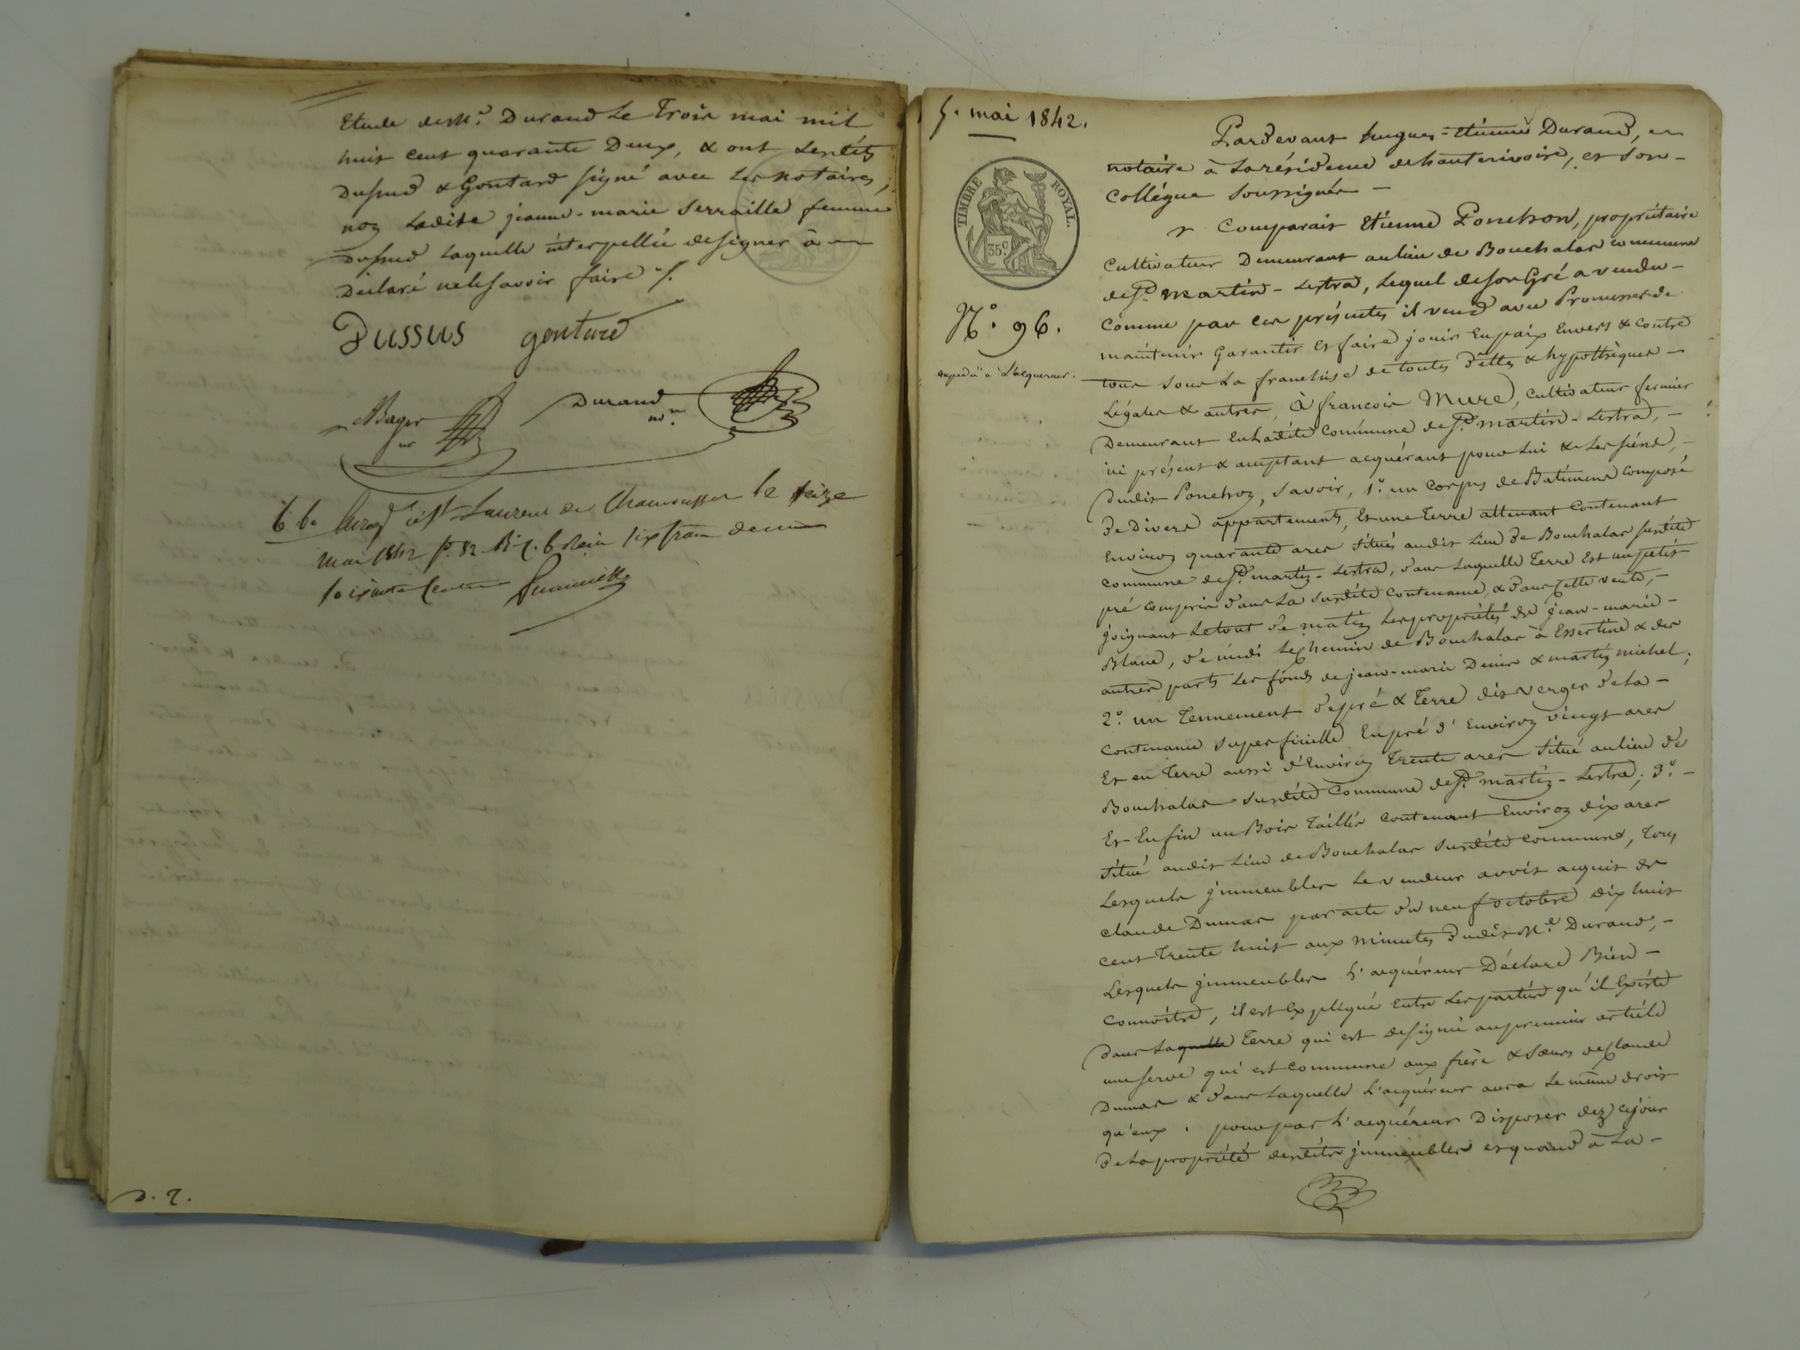 Etude de Me. Durand Le Trois mai mil
huit cent quarante Deux, & ont Lesdits
Dussud & Goutard signé avec Les notaires,
non Ladite jeanne-marie Serraille femme
Dussud Laquelle interpellée de signer à
Déclaré ne le savoir faire ./.
DUSSUS goutard
Bager Durand
nre nore.
6 60 Enregé à St Laurent de Chamousset le seize
mai 1842 fo. 82 Ro c. 6 Reçu six francs decime
soixante centimes
D. 2.
5. mai 1842.
TIMBRE ROYAL
35c.
No. 96.
expédié à L'acquereur.
Pardevant hugues-Etienne Durand,
notaire à La résidence de hauterivoire, et son-
Collégue Soussignés-
Comparait Etienne Ponchon, propriétaire
Cultivateur Demeurant au lieu de Bouchalas commune
de St. martin-Lestra, Lequel de son Gré a vendu-
Comme par ces présentes il vend avec Promesse de
maintenir Garantir et faire jouir En paix Envers & contre
tous sous La franchise de toutes Dettes & hypothèques-
Légales & autres, à françois Mure, Cultivateur fermier
Demeurant En ladite Commune de St. martin-Lestra,-
ici présent & acceptant acquérant pour Lui & Les siens,-
Dudit Ponchon, Savoir, 1o. un Corps de Batiment Composé
De Divers appartements, Et une Terre attenant Contenant
Environ quarante ares situés audit Lieu de Bouchalas susdite
commune de St. martin-Lestra, dans Laquelle Terre Est un petit
pré compris dans La susdite contenance, & dans cette vente,-
joignant Le tout de matin Les propriétés de jean-marie-
Blanc, de midi Le chemin de Bouchalas à Essertine & des
autres parts Les fonds de jean-marie Denis & martin michel;
2o. un Tennement de pré & Terre dit verger de La-
contenance superficielle En pré d'Environ vingt ares
Et en Terre aussi d'Environ Trente ares situé au lieu de
Bouchalas susdite Commune de St. martin-Lestra; 3o.-
Et Enfin un Bois Taillis contenant Environ dix ares
situé audit Lieu de Bouchalas susdite commune, Tous
Lesquels immeubles Le vendeur avoit acquit de
Claude Dumas par acte du neuf octobre dix huit
cent Trente huit aux minutes dudit Me. Durand,-
Lesquels immeubles L'acquéreur Déclare Bien-
Connoître, il est Expliqué Entre Les parties qu'il Existe
Dans Laquelle Terre qui est designée au premier article
une serve qui est commune aux frère & sœurs de Claude
Dumas & dans Laquelle L'acquéreur aura Le même droit
qu'eux. pour par L'acquéreur Disposer dez ce jour
De La propriété desdits immeubles et quand à La-